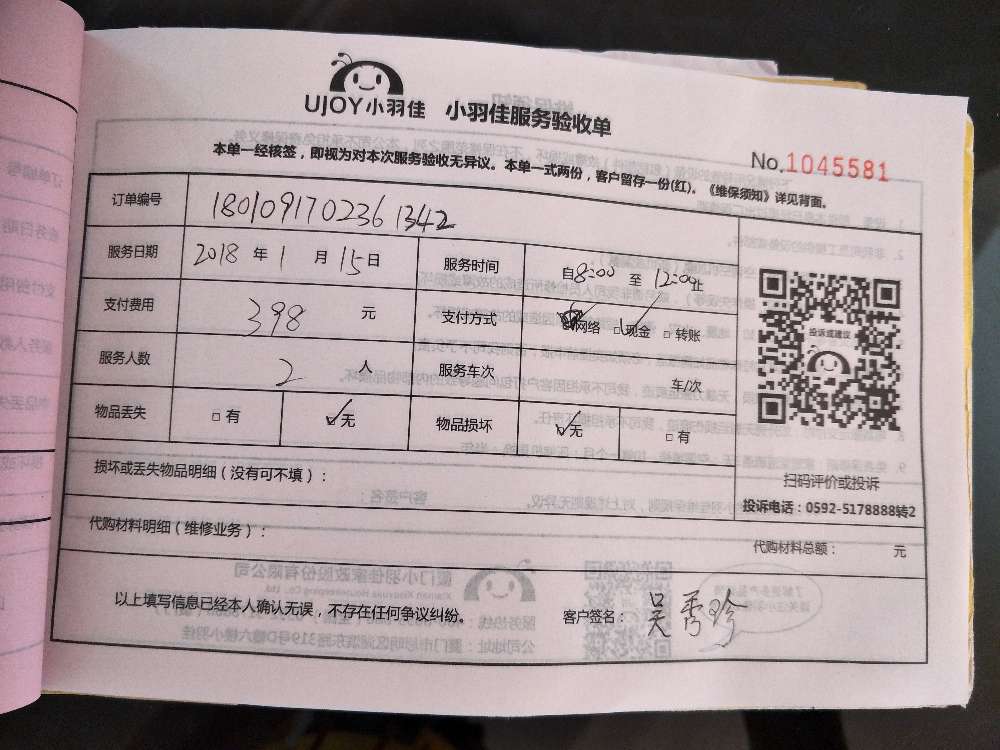 UJOY小羽佳 小羽佳服务验收单
本单一经核签，即视为对本次服务验收无异议。本单一式两份，客户留存一份(红)。《维保须知》详见背面。
No.1045581
订单编号 180109170236 1342
服务日期 2018 年 1 月 15 日 服务时间 自8:00 至 12:00止
支付费用 398 元 支付方式 网络 现金 转账
服务人数 2 人 服务车次 车/次
物品丢失 有 无 物品损坏 无 有
投诉或建议
扫码评价或投诉
投诉电话：0592-5178888转2
损坏或丢失物品明细（没有可不填）：
代购材料明细（维修业务）：
代购材料总额： 元
以上填写信息已经本人确认无误，不存在任何争议纠纷。 客户签名： 吴秀珍